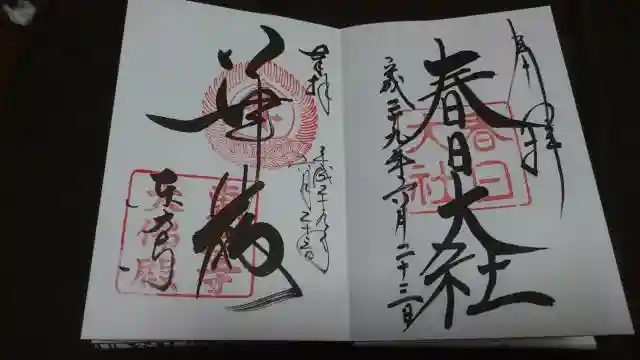 奉拝
春日大社
平成二九年六月二十三日
春日
大社
奉拝
平成二十九年
六月二十三日
華厳
東大寺